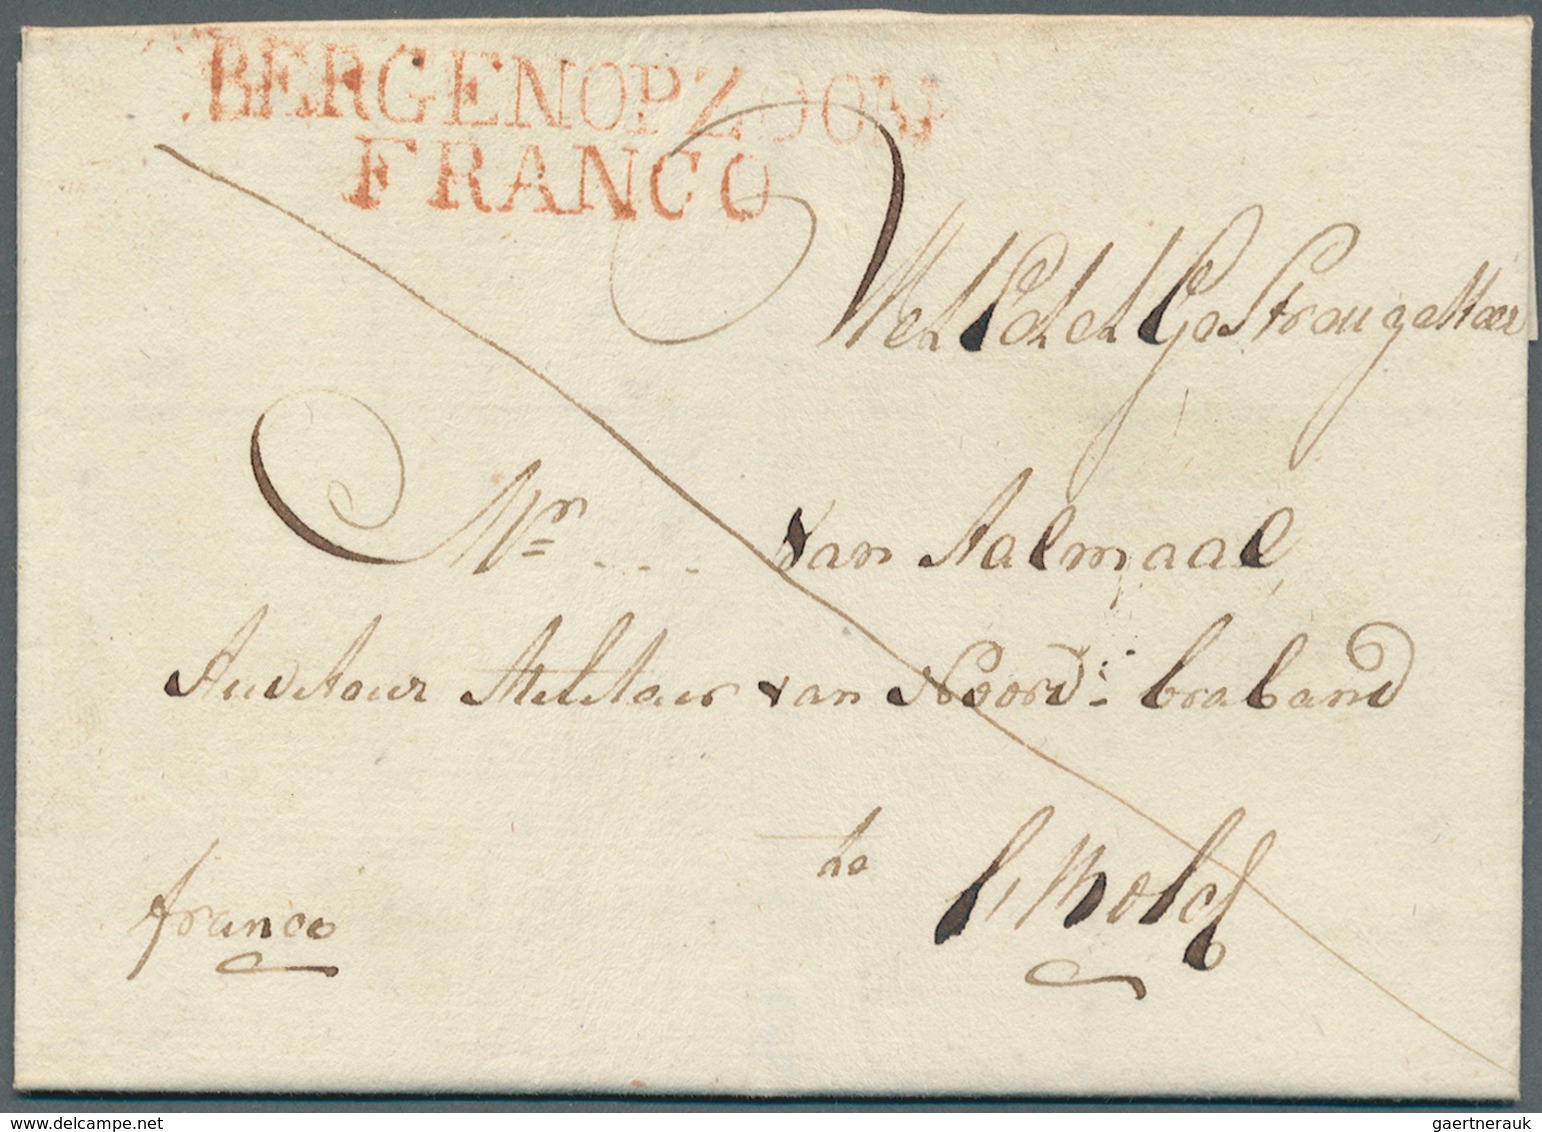 BERGENOPZOOM
FRANCO
Wel Edel Gestrenge Heer
Mr van Aalmaal
Auditeur Militair van Noord: braband
te
franco
gaertnerauk@delcampe.net